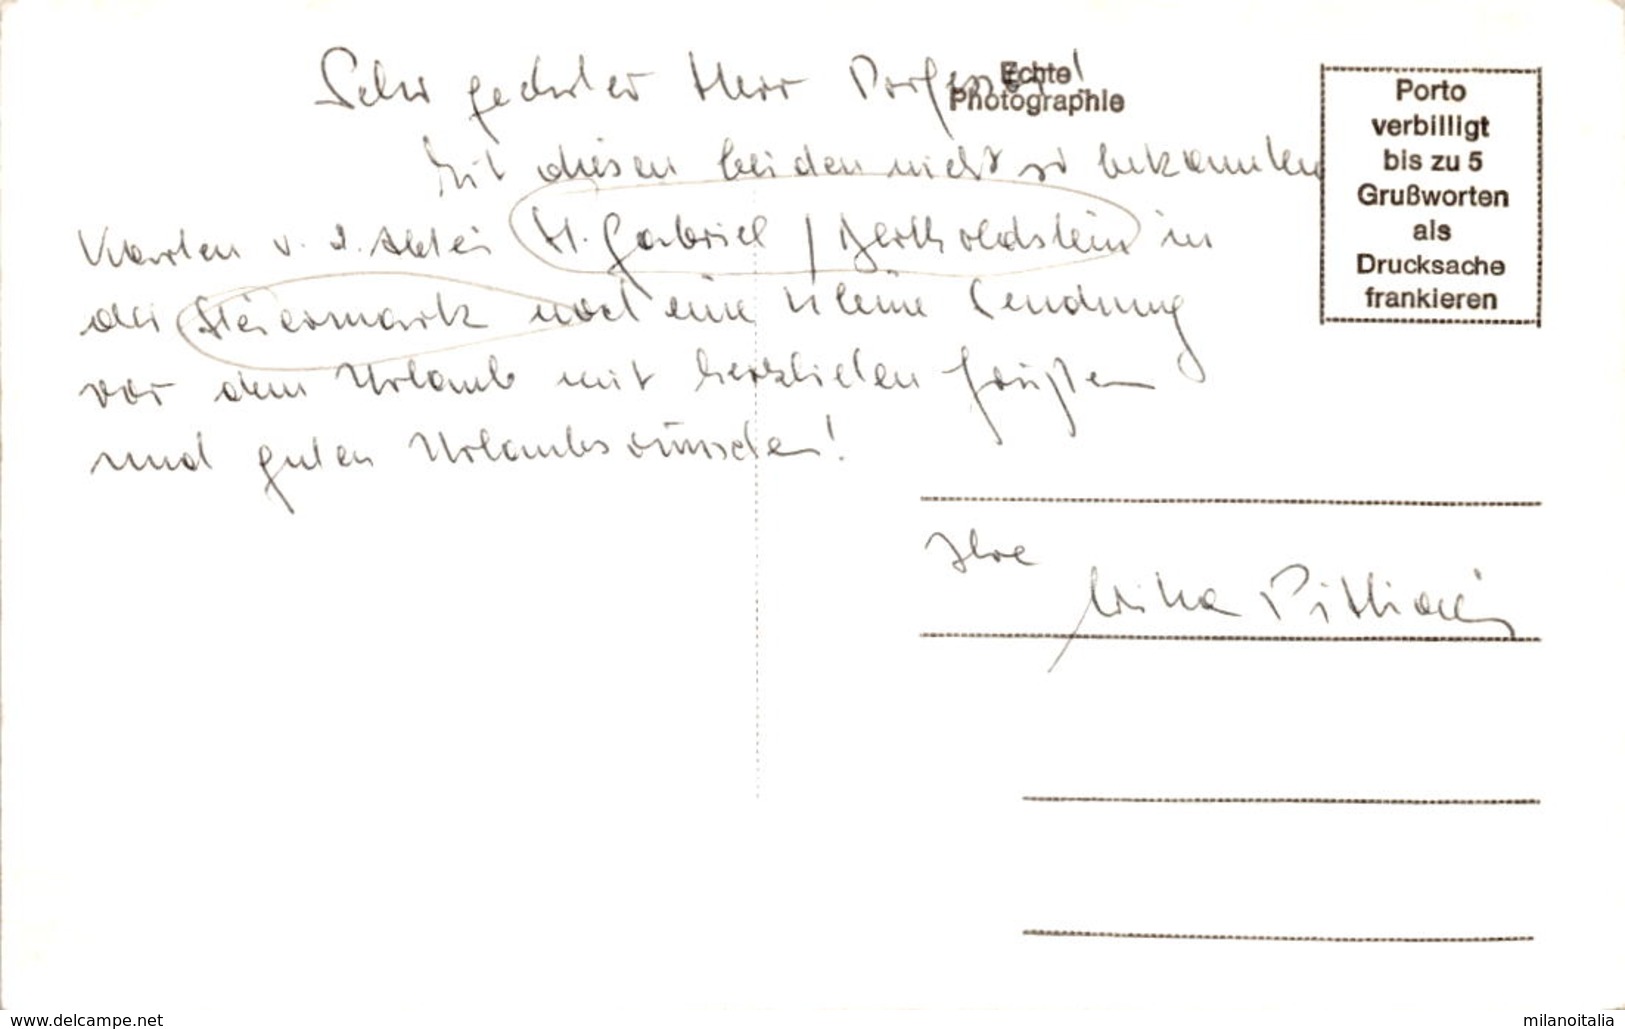 Sehr geehrter Herr Professor!
Echte
Photographie
Mit diesen beiden nicht so bekannten
Karten v. d. Abtei St. Gabriel / Bertholdstein in
der Steiermark noch eine kleine Sendung
vor dem Urlaub mit herzlichen Grüßen
und guten Urlaubswünschen!
Porto
verbilligt
bis zu 5
Grußworten
als
Drucksache
frankieren
Ihre
www.delcampe.net
milanoitalia